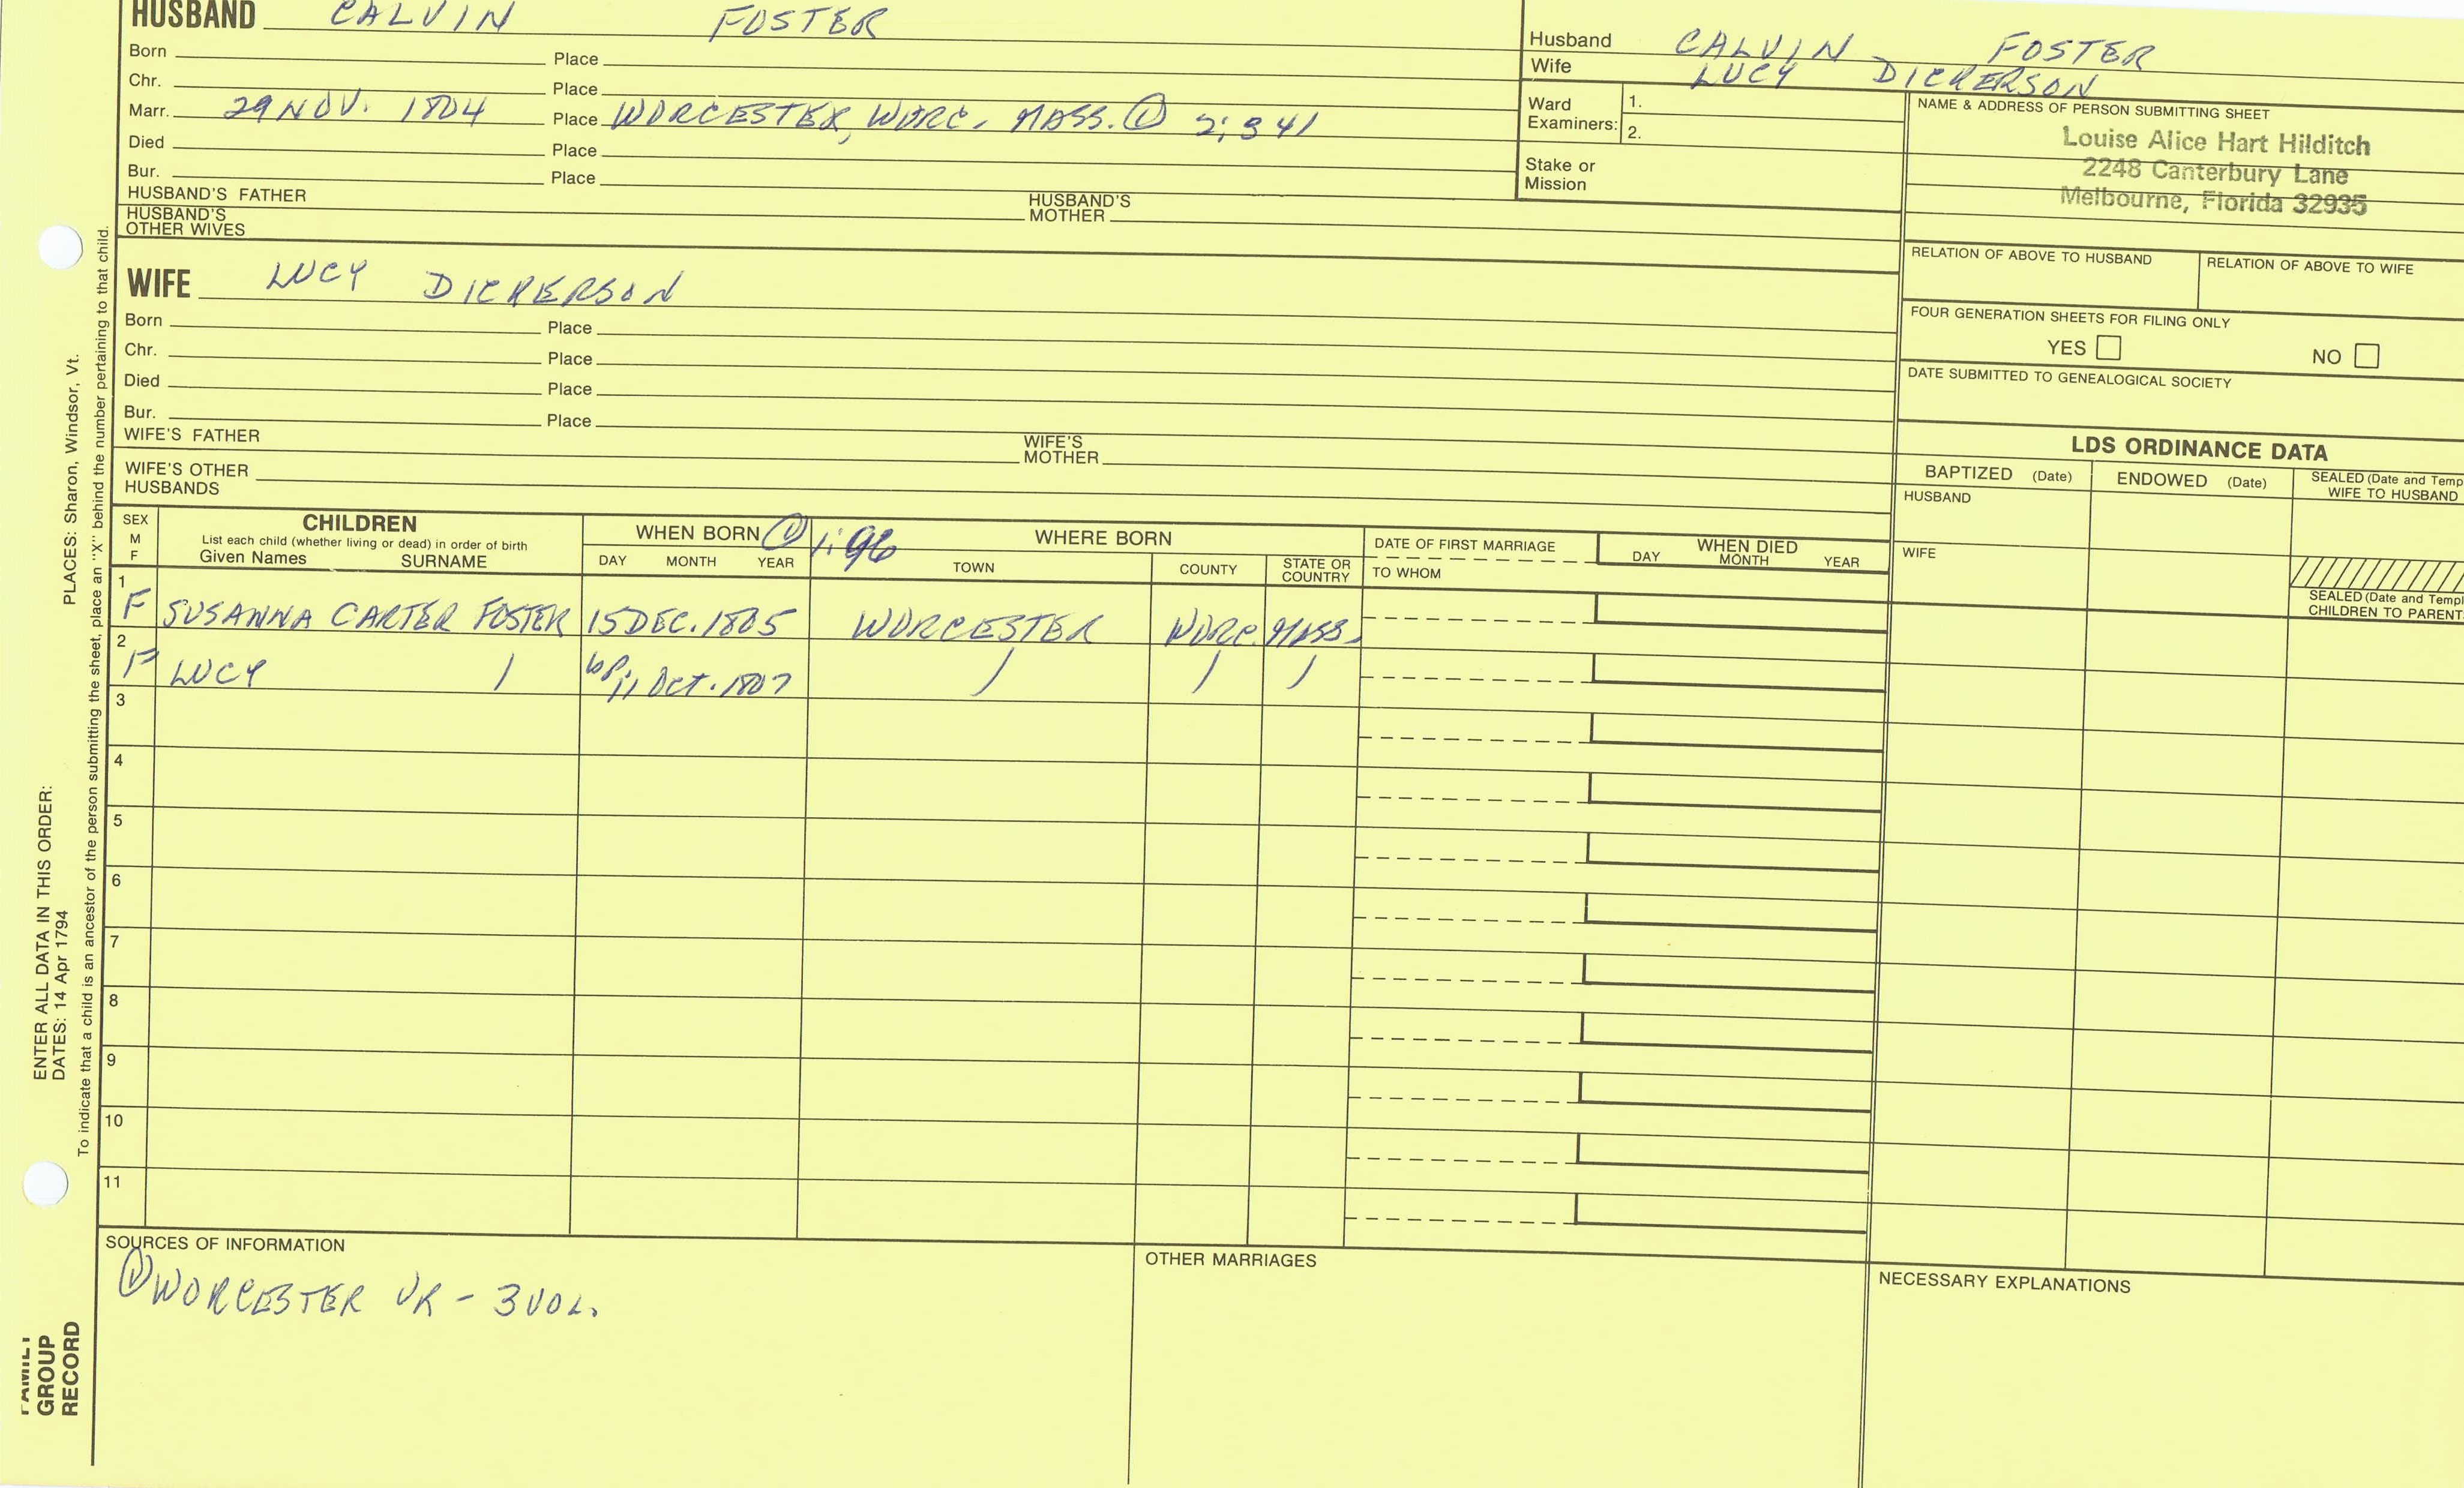 HUSBAND CALVIN FOSTER
Born Place
Chr. Place
Marr. 29 NOV. 1804 Place WORCESTER, WORC. MASS. ① 2; 341
Died Place
Bur. Place
HUSBAND'S FATHER HUSBAND'S MOTHER
HUSBAND'S OTHER WIVES
Husband CALVIN FOSTER
Wife LUCY DICKERSON
Ward Examiners: 1.
2.
Stake or Mission
NAME & ADDRESS OF PERSON SUBMITTING SHEET
Louise Alice Hart Hilditch
2248 Canterbury Lane
Melbourne, Florida 32935
RELATION OF ABOVE TO HUSBAND RELATION OF ABOVE TO WIFE
FOUR GENERATION SHEETS FOR FILING ONLY
YES NO
DATE SUBMITTED TO GENEALOGICAL SOCIETY
WIFE LUCY DICKERSON
Born Place
Chr. Place
Died Place
Bur. Place
WIFE'S FATHER WIFE'S MOTHER
WIFE'S OTHER HUSBANDS
LDS ORDINANCE DATA
BAPTIZED (Date) ENDOWED (Date) SEALED (Date and Temp
WIFE TO HUSBAND
HUSBAND
WIFE
SEALED (Date and Templ
CHILDREN TO PARENT
SEX
M
F
CHILDREN
List each child (whether living or dead) in order of birth
Given Names SURNAME
WHEN BORN ① 1:96
DAY MONTH YEAR
WHERE BORN
TOWN COUNTY STATE OR COUNTRY
DATE OF FIRST MARRIAGE
TO WHOM
WHEN DIED
DAY MONTH YEAR
1 F SUSANNA CARTER FOSTER 15 DEC. 1805 WORCESTER WORC. MASS.
2 F LUCY bp. 11 OCT. 1807
3
4
5
6
7
8
9
10
11
SOURCES OF INFORMATION
① WORCESTER VR - 3 VOL.
OTHER MARRIAGES
NECESSARY EXPLANATIONS
ENTER ALL DATA IN THIS ORDER:
DATES: 14 Apr 1794 PLACES: Sharon, Windsor, Vt.
To indicate that a child is an ancestor of the person submitting the sheet, place an "X" behind the number pertaining to that child.
FAMILY
GROUP
RECORD